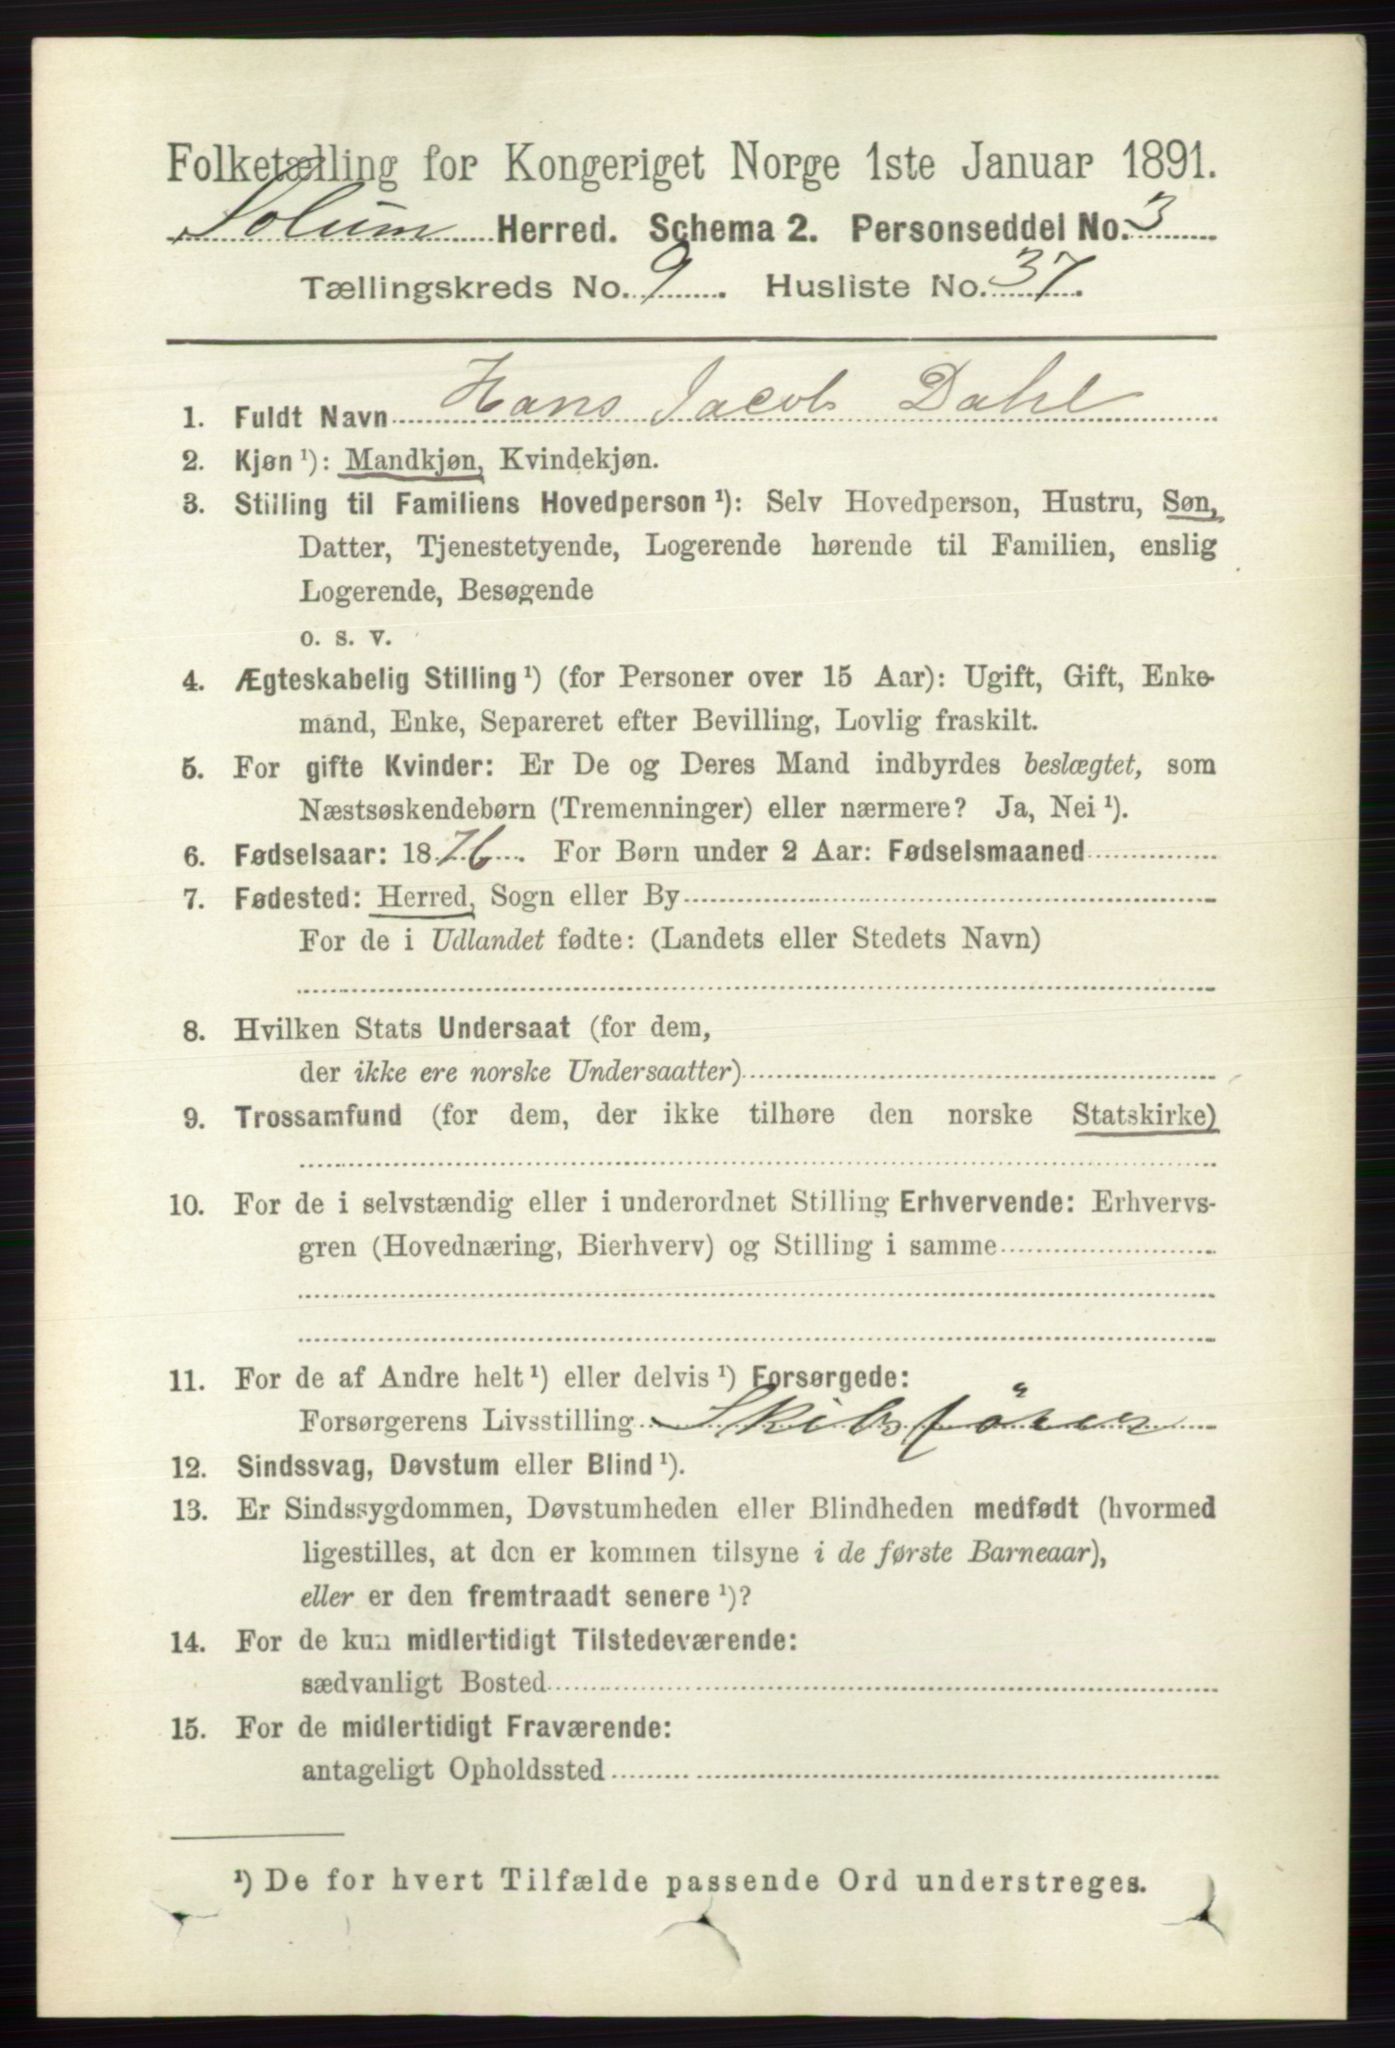 Folketælling for Kongeriget Norge 1ste Januar 1891.
Solum Herred. Schema 2. Personseddel No. 3
Tællingskreds No. 9. Husliste No. 37.
1. Fuldt Navn Hans Jacob Dahl
2. Kjøn ¹): Mandkjøn, Kvindekjøn.
3. Stilling til Familiens Hovedperson ¹): Selv Hovedperson, Hustru, Søn,
Datter, Tjenestetyende, Logerende hørende til Familien, enslig
Logerende, Besøgende
o. s. v.
4. Ægteskabelig Stilling ¹) (for Personer over 15 Aar): Ugift, Gift, Enke-
mand, Enke, Separeret efter Bevilling, Lovlig fraskilt.
5. For gifte Kvinder: Er De og Deres Mand indbyrdes beslægtet, som
Næstsøskendebørn (Tremenninger) eller nærmere? Ja, Nei ¹).
6. Fødselsaar: 1876. For Børn under 2 Aar: Fødselsmaaned
7. Fødested: Herred, Sogn eller By
For de i Udlandet fødte: (Landets eller Stedets Navn)
8. Hvilken Stats Undersaat (for dem,
der ikke ere norske Undersaatter)
9. Trossamfund (for dem, der ikke tilhøre den norske Statskirke)
10. For de i selvstændig eller i underordnet Stilling Erhvervende: Erhvervs-
gren (Hovednæring, Bierhverv) og Stilling i samme
11. For de af Andre helt ¹) eller delvis ¹) Forsørgede:
Forsørgerens Livsstilling Skibsförer
12. Sindssvag, Døvstum eller Blind ¹).
13. Er Sindssygdommen, Døvstumheden eller Blindheden medfødt (hvormed
ligestilles, at den er kommen tilsyne i de første Barneaar),
eller er den fremtraadt senere ¹)?
14. For de kun midlertidigt Tilstedeværende:
sædvanligt Bosted
15. For de midlertidigt Fraværende:
antageligt Opholdssted
¹) De for hvert Tilfælde passende Ord understreges.